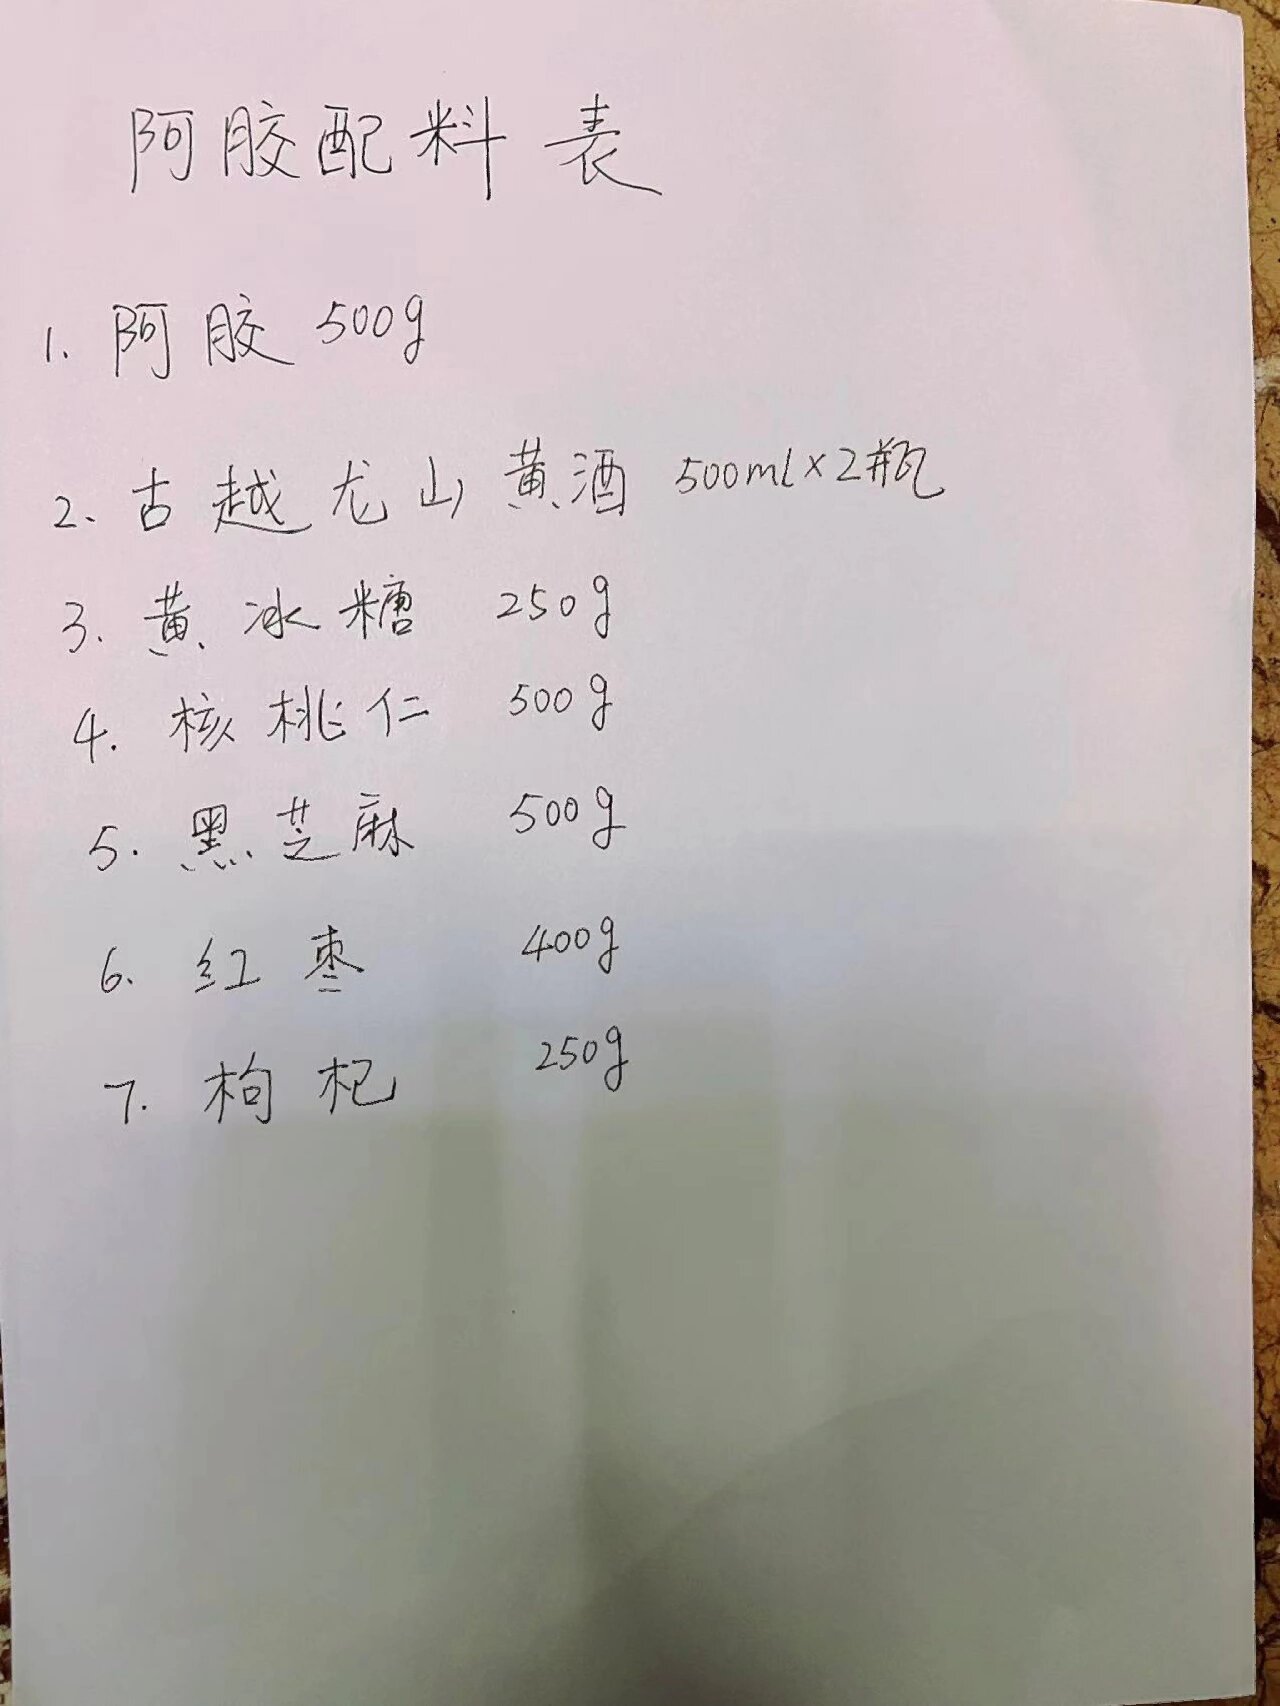 阿胶配料表
1. 阿胶 500g
2. 古越龙山黄酒 500ml×2瓶
3. 黄冰糖 250g
4. 核桃仁 500g
5. 黑芝麻 500g
6. 红枣 400g
7. 枸杞 250g